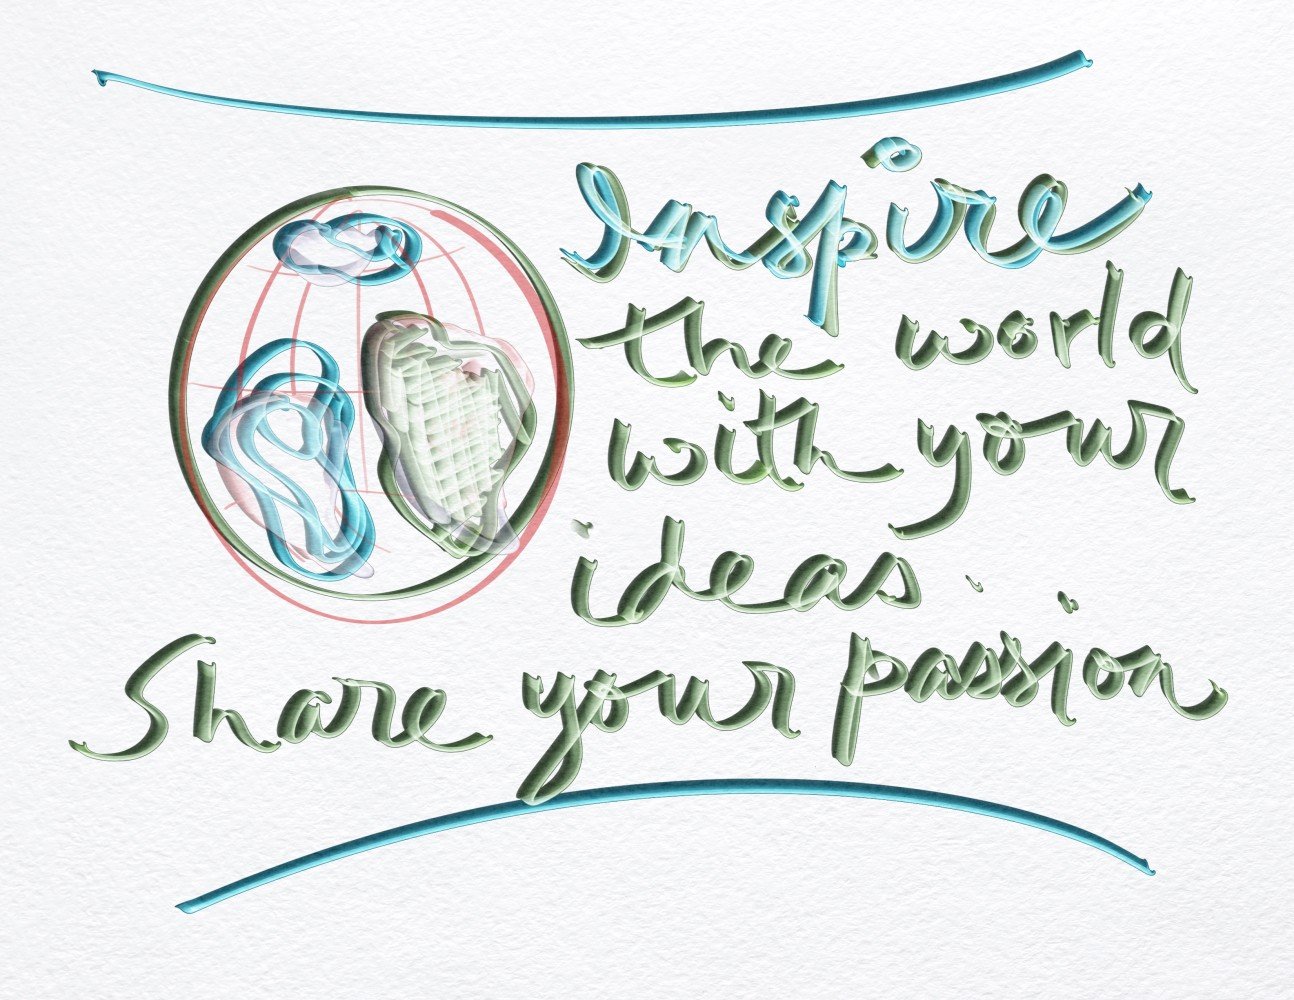 Inspire
the world
with your
ideas.
Share your passion